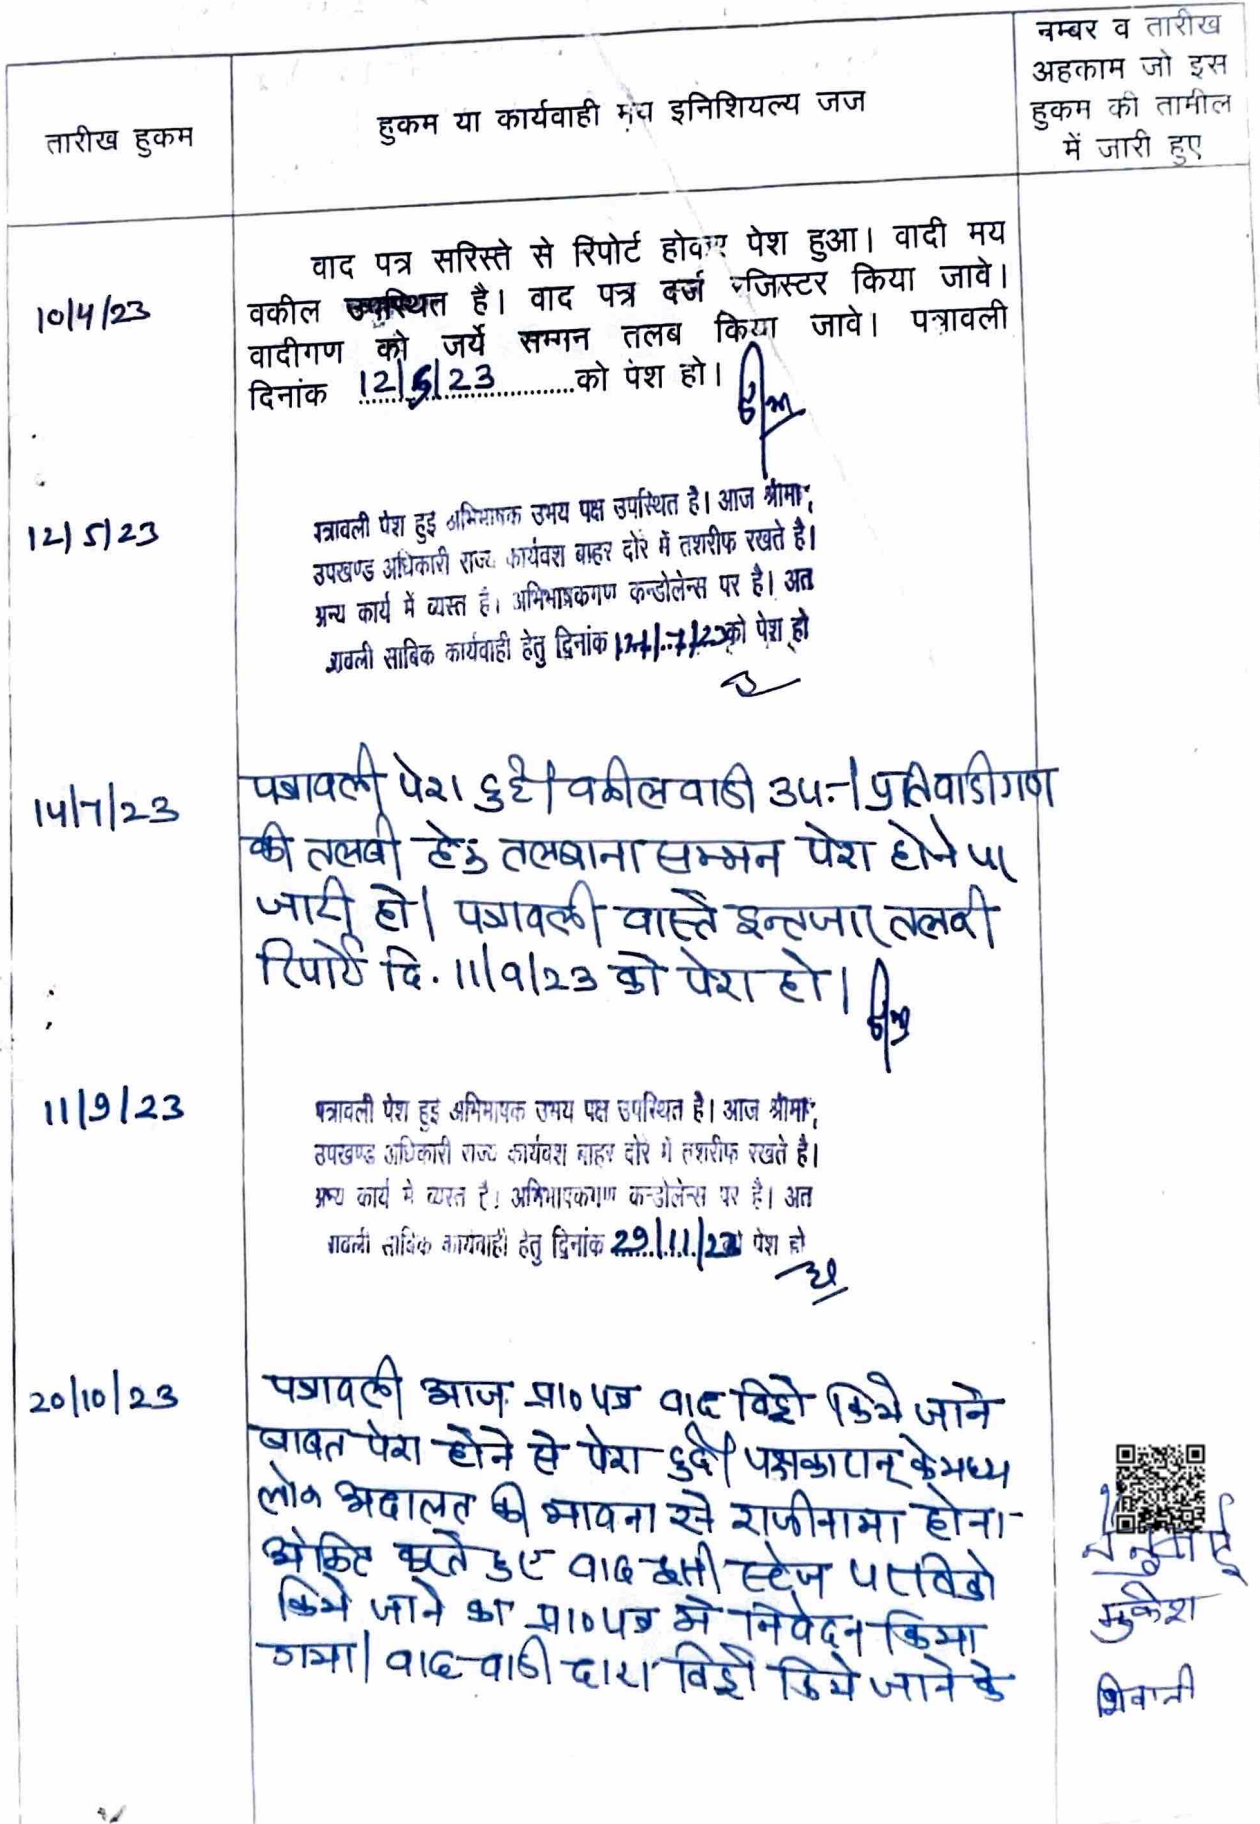 तारीख हुकम
हुकम या कार्यवाही मय इनिशियल्य जज
नम्बर व तारीख
अहकाम जो इस
हुकम की तामील
में जारी हुए
10/4/23
वाद पत्र सरिस्ते से रिपोर्ट होकर पेश हुआ। वादी मय
वकील उपस्थित है। वाद पत्र दर्ज रजिस्टर किया जावे।
वादीगण को जर्ये सम्मन तलब किया जावे। पत्रावली
दिनांक 12/5/23 को पेश हो।
12/5/23
पत्रावली पेश हुई अभिभाषक उभय पक्ष उपस्थित है। आज श्रीमान
उपखण्ड अधिकारी राज्य कार्यवश बाहर दोरे में तशरीफ रखते है।
अन्य कार्य में व्यस्त है। अभिभाषकगण कन्डोलेन्स पर है। अत
त्रावली साबिक कार्यवाही हेतु दिनांक को पेश हो
14/7/23
पत्रावली पेश हुई। वकील वादी उप.। प्रतिवादीगण
की तलबी हेतु तलबाना सम्मन पेश होने पर
जारी हो। पत्रावली वास्ते इन्तजार तलबी
रिपोर्ट दि. 11/9/23 को पेश हो।
11/9/23
पत्रावली पेश हुई अभिभाषक उभय पक्ष उपस्थित है। आज श्रीमान
उपखण्ड अधिकारी राज्य कार्यवश बाहर दोरे में तशरीफ रखते है।
अन्य कार्य में व्यस्त है। अभिभाषकगण कन्डोलेन्स पर है। अत
त्रावली साबिक कार्यवाही हेतु दिनांक 29/11/23 को पेश हो
20/10/23
पत्रावली आज प्रा० पत्र वाद विड्रो किये जाने
बाबत पेश होने से पेश हुई। पक्षकारान् के मध्य
लोक अदालत की भावना से राजीनामा होना
अंकित करते हुए वाद इसी स्टेज पर विड्रो
किये जाने का प्रा० पत्र में निवेदन किया
गया। वाद वादी द्वारा विड्रो किये जाने के
मुकेश
शिवानी